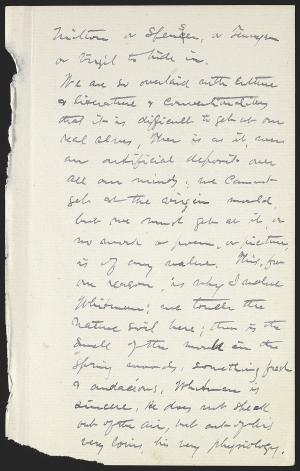 Milton or Spenser, or Tennyson
or Virgil to hide in.
We are so overlaid with culture
& literature & conventionalities
that it is difficult to get at our
real selves, There is as it were
an artificial deposit over
all our minds; we cannot
get at the virgin mould,
but we must get at it or
no work or poem, or picture,
is of any value. This, for
one reason, is why I value
Whitman; we touch the
native soil here; this is the
smell of the mould in the
spring woods, something fresh
& audacious, Whitman is
sincere, He does not speak
out of the air, but out of his
very loins, his very physiology.